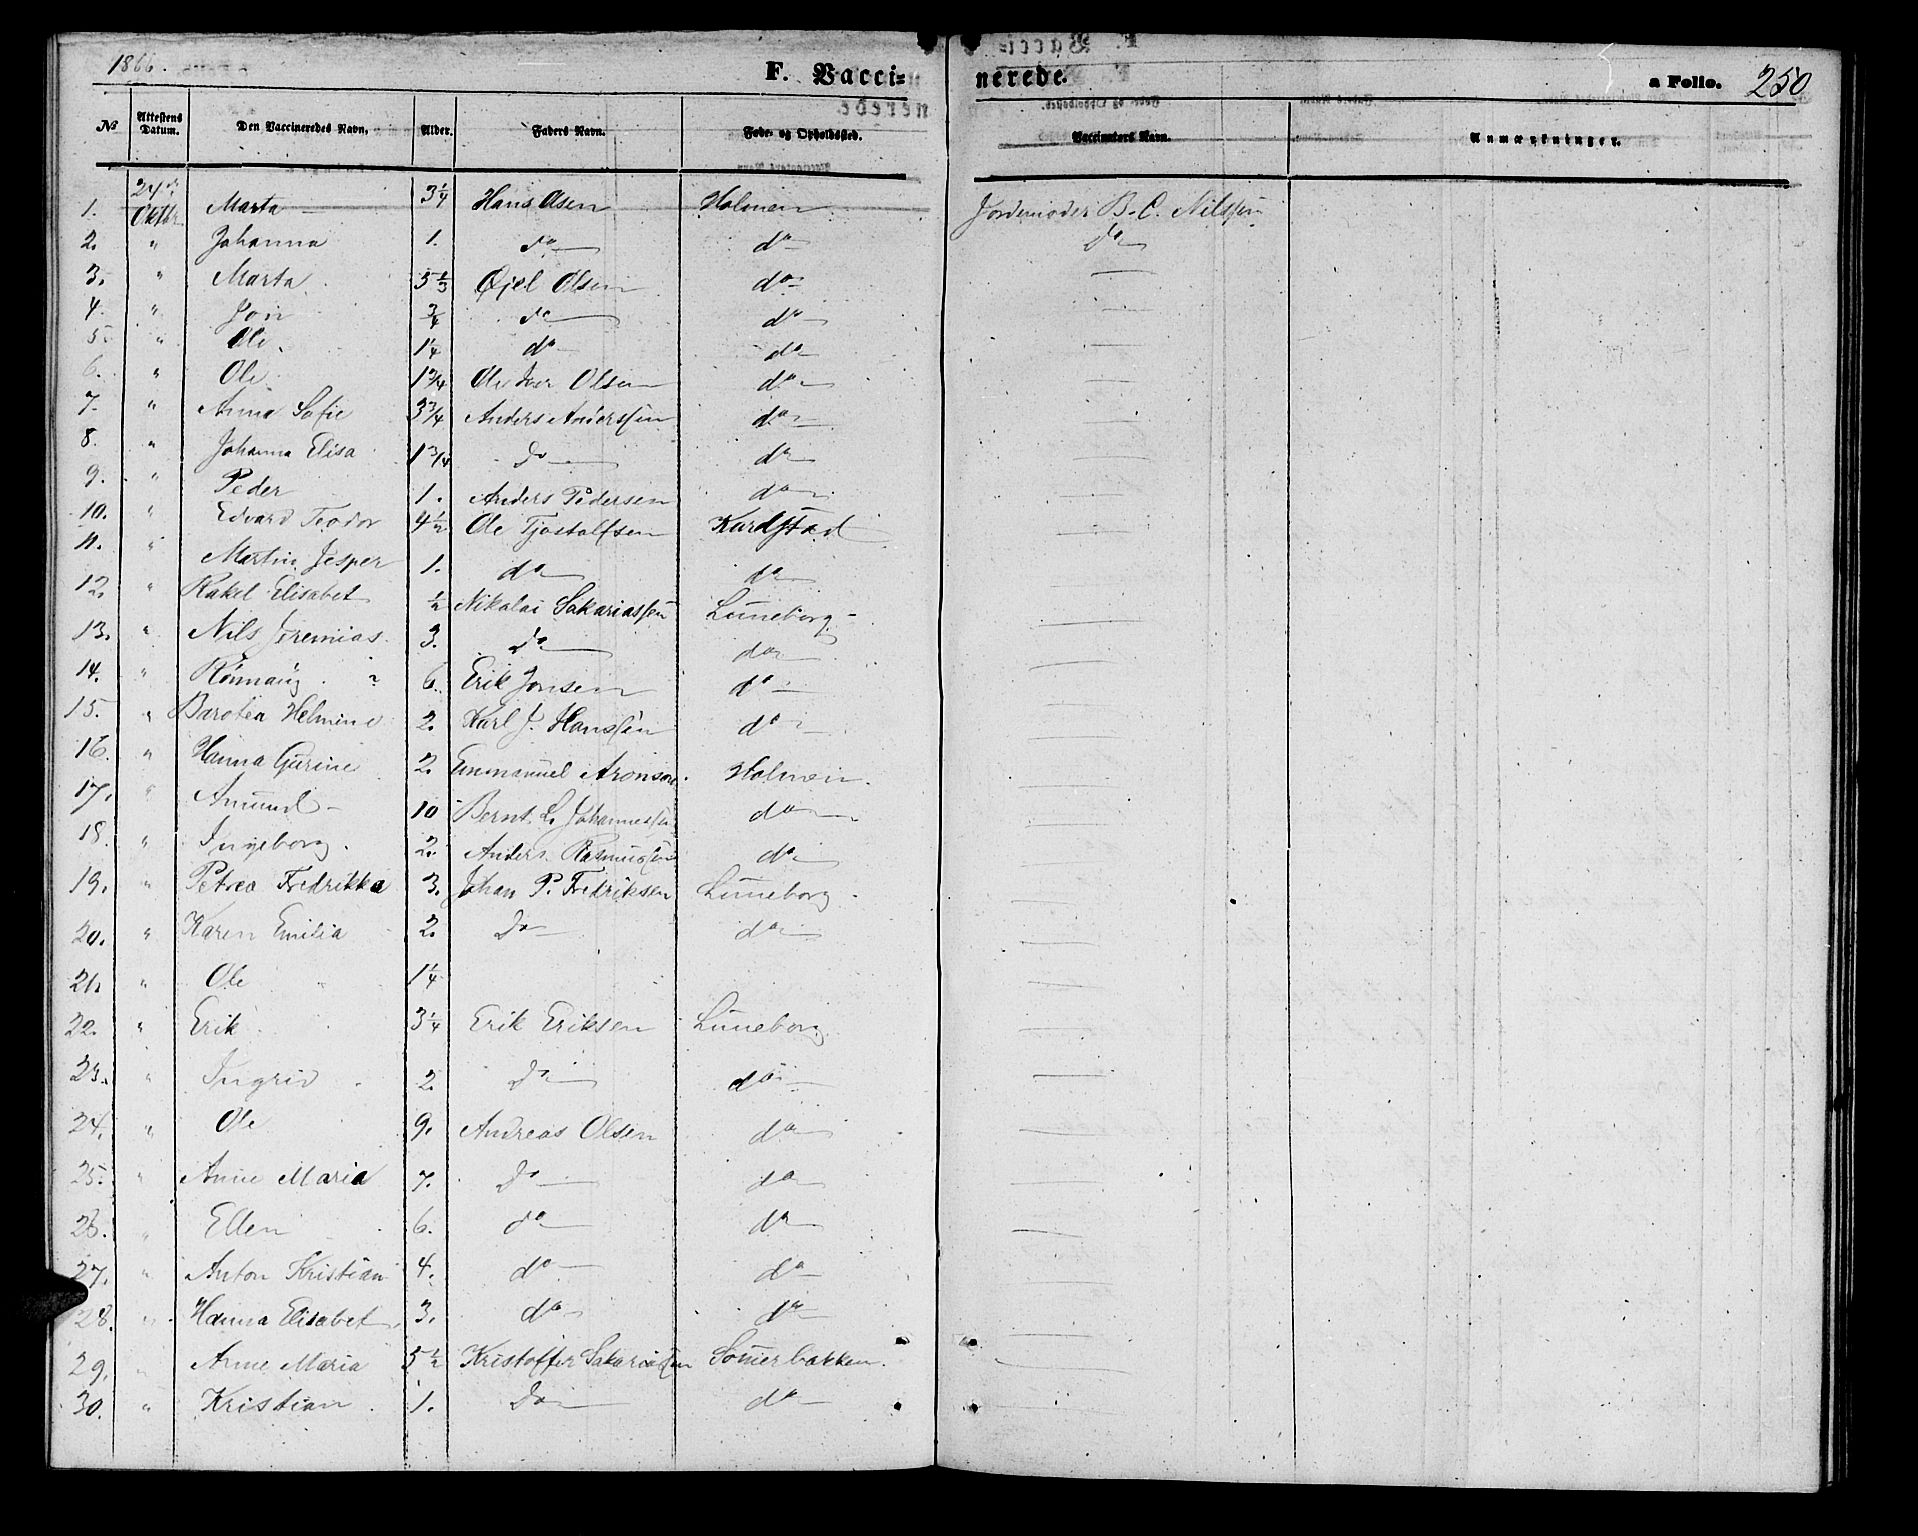 1866.
F. Vacci=
nerede.
a Folio. 250
№ | Attestens Datum. | Den Vaccineredes Navn. | Alder. | Faders Navn. | Føde- og Opholdssted. | Vaccinators Navn. | Anmærkninger.
1. | 24de Oktbr | Marta | 3 1/4 | Hans Olsen | Holmen | Jordemoder B. C. Nilssen
2. | " | Johanna | 1. | do | do | do
3. | " | Marta | 5 1/3 | Kjel Olsen | do | —
4. | " | Jon | 3/4 | do | do | —
5. | " | Ole | 1 1/4 | do | do | —
6. | " | Ole | 1 3/4 | Ole Iver Olsen | do | —
7. | " | Anna Sofie | 3 3/4 | Anders Anderssen | do | —
8. | " | Johanna Elisa | 1 3/4 | Do | do
9. | " | Peder | 1. | Anders Pedersen | do | —
10. | " | Edvard Teodor | 4 1/2 | Ole Tjostolfsen | Kardstad | —
11. | " | Martin Jesper | 1. | do | do | —
12. | " | Rakel Elisabet | 1/2 | Nikolai Sakariassen | Luneborg | —
13. | " | Nils Jeremias | 3. | Do | do | —
14. | " | Rönnaug | 6. | Erik Jonsen | do | —
15. | " | Barotea Helmine | 2. | Karl J. Hanssen | do | —
16. | " | Hanna Gurine | 2. | Emmanuel Aronsen | Holmen | —
17. | " | Amund | 10 | Bernt L. Johannessen | do | —
18. | " | Ingeborg | 2. | Anders Rasmussen | do | —
19. | " | Petrea Fredrikka | 3. | Johan P. Fredriksen | Luneborg | —
20. | " | Karen Emilia | 2. | Do | do | —
21. | " | Ole | 1 1/4 | | | —
22. | " | Erik | 3 1/4 | Erik Eriksen | Luneborg | —
23. | " | Ingrid | 2 | Do | do | —
24. | " | Ole | 9. | Andreas Olsen | do | —
25. | " | Anne Maria | 7. | Do | do | —
26. | " | Ellen | 6. | do | do | —
27. | " | Anton Kristian | 4. | do | do | —
28. | " | Hanna Elisabet | 3. | do | do | —
29. | " | Anne Maria | 5 1/2 | Kristoffer Sakariassen | Somerbakken | —
30. | " | Kristian | 1. | Do | do | —